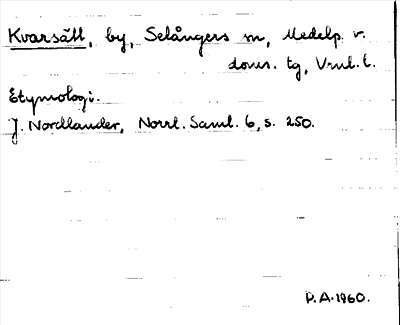 Kvarsätt, by, Selångers sn, Medelp. v.
doms. tg, Vrnl. l.
Etymologi.
J. Nordlander, Norrl. Saml. 6, s. 250.
P.A. 1960.